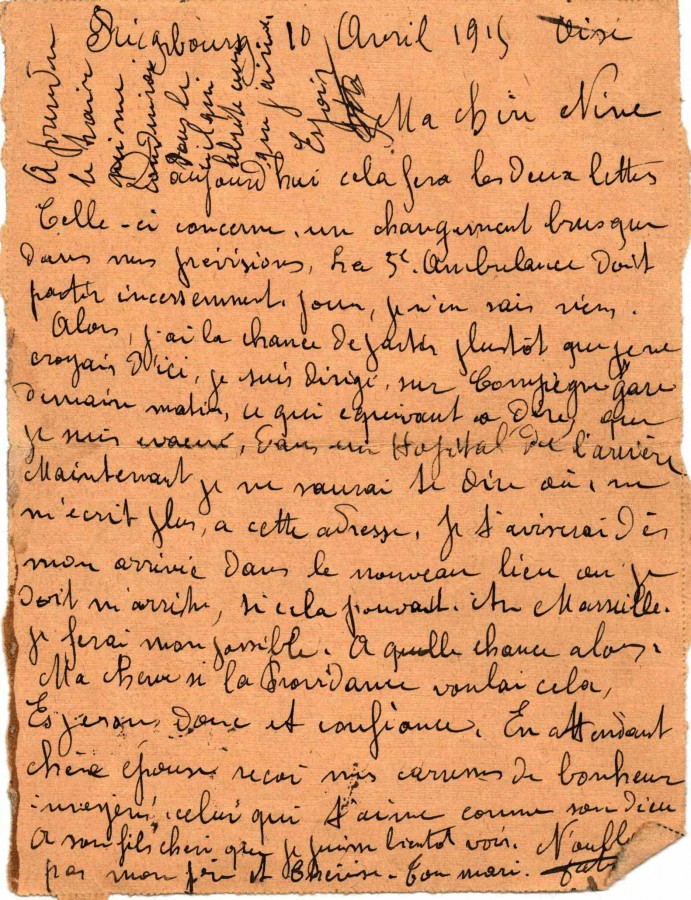 10 Avril 1915
Ma chère Nine
aujourd'hui cela fera les deux lettes
Celle-ci concerne, un changement brusque
dans mes prévisions, La 5e Ambulance doit
partir incessemment. jour, je n'en sais rien.
Alors, j'ai la chance de partir plustôt que je ne
croyais d'ici, je suis dirigé, sur Compiègne gare
demain matin, ce qui equivaut a dire, que
je suis evacué, dans un Hopital de l'arrière
Maintenant je ne saurai te dire où, ne
m'écrit plus, a cette adresse, je t'aviserai dès
mon arrivée dans le nouveau lieu ou je
doit m'arrêter, si cela pouvait. être Marseille.
je ferai mon possible. A quelle chance alors.
Ma chère si la Providance voulai cela,
Esperons donc et confiance. En attendant
chère épouse reçoi mes caresses de bonheur
celui qui t'aime comme son dieu
A son fils cheri que je puisse bientot voir. N'oublie
pas mon père et Thérèse. Ton mari.